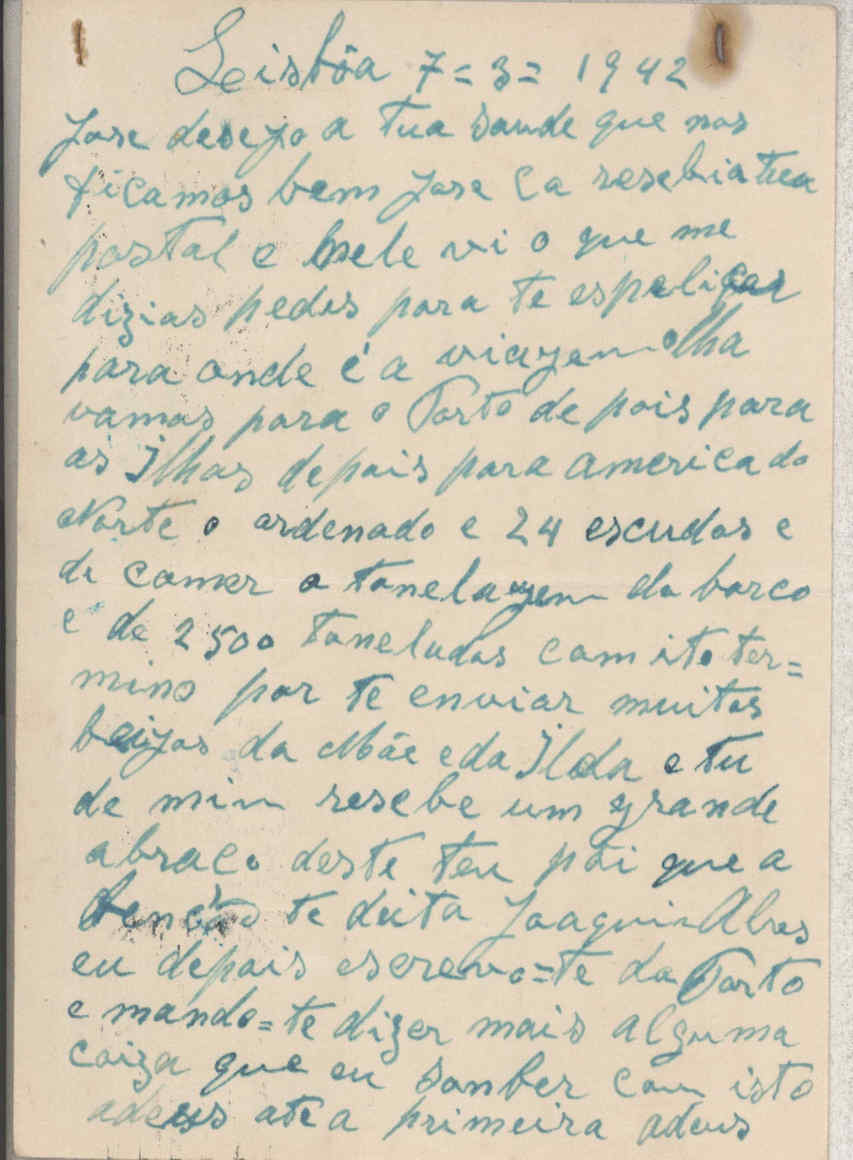 Leisbôa 7=3=1942
Jose desejo a tua saude que nos
ficamos bem Jose Ca resebi a tua
postal e nele vi o que me
dizias pedes para te espelicar
para onde é a viagem olha
vamos para o Porto de pois para
as Ilhas depois para america do
Norte o ordenado e 24 escudos e
de comer a tonelagem do barco
e de 2500 toneludas com isto ter=
mino por te enviar muitos
beijos da Mãe e da Ilda e tu
de mim resebe um grande
abraco deste teu pai que a
bencão te deita Joaquim Alves
eu depois escrevo=te do Porto
e mando=te dizer mais alguma
coiza que eu souber com isto
adeus ate a primeira adeus